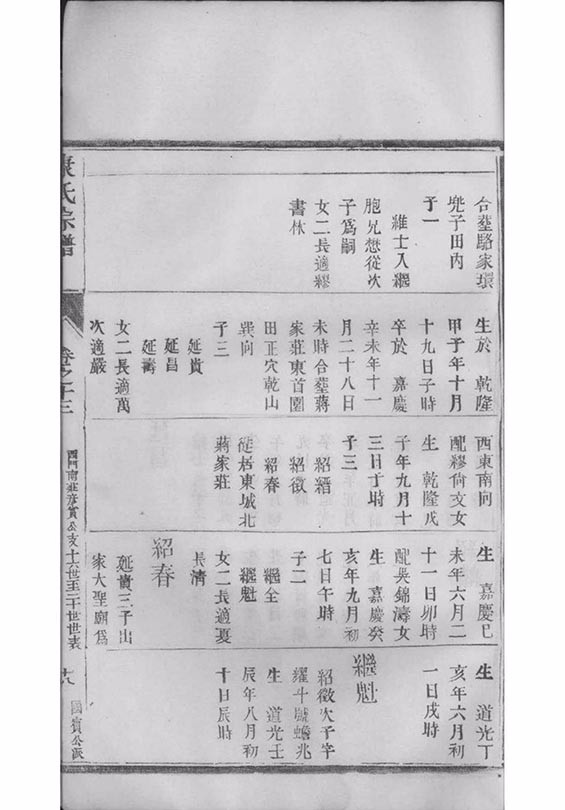 合塟駱家環
兜子田內
子一
維士入繼
胞兄懋從次
子爲嗣
女二長適繆
書林
生於 乾隆
甲子年十月
十九日子時
卒於 嘉慶
辛未年十一
月二十八日
未時合塟蔣
家莊東首園
田正穴乾山
巽向
子三
延貴
延昌
延壽
女二長適萬
次適嚴
西東南向
配繆尙文女
生 乾隆戊
子年九月十
三日丁時
子三
紹縉
紹徵
紹春
徙居東城北
蔣家莊
生 嘉慶己
未年六月二
十一日卯時
配吳錦濤女
生 嘉慶癸
亥年九月初
七日午時
子二
繼全
繼魁
女二長適夏
長淸
紹春
延貴三子出
家大聖廟爲
生 道光丁
亥年六月初
一日戌時
繼魁
紹徵次子字
耀斗號蟾兆
生 道光壬
辰年八月初
十日辰時
康氏宗譜
卷之十三
公支十六世至二十世世表
十八
國賓公派